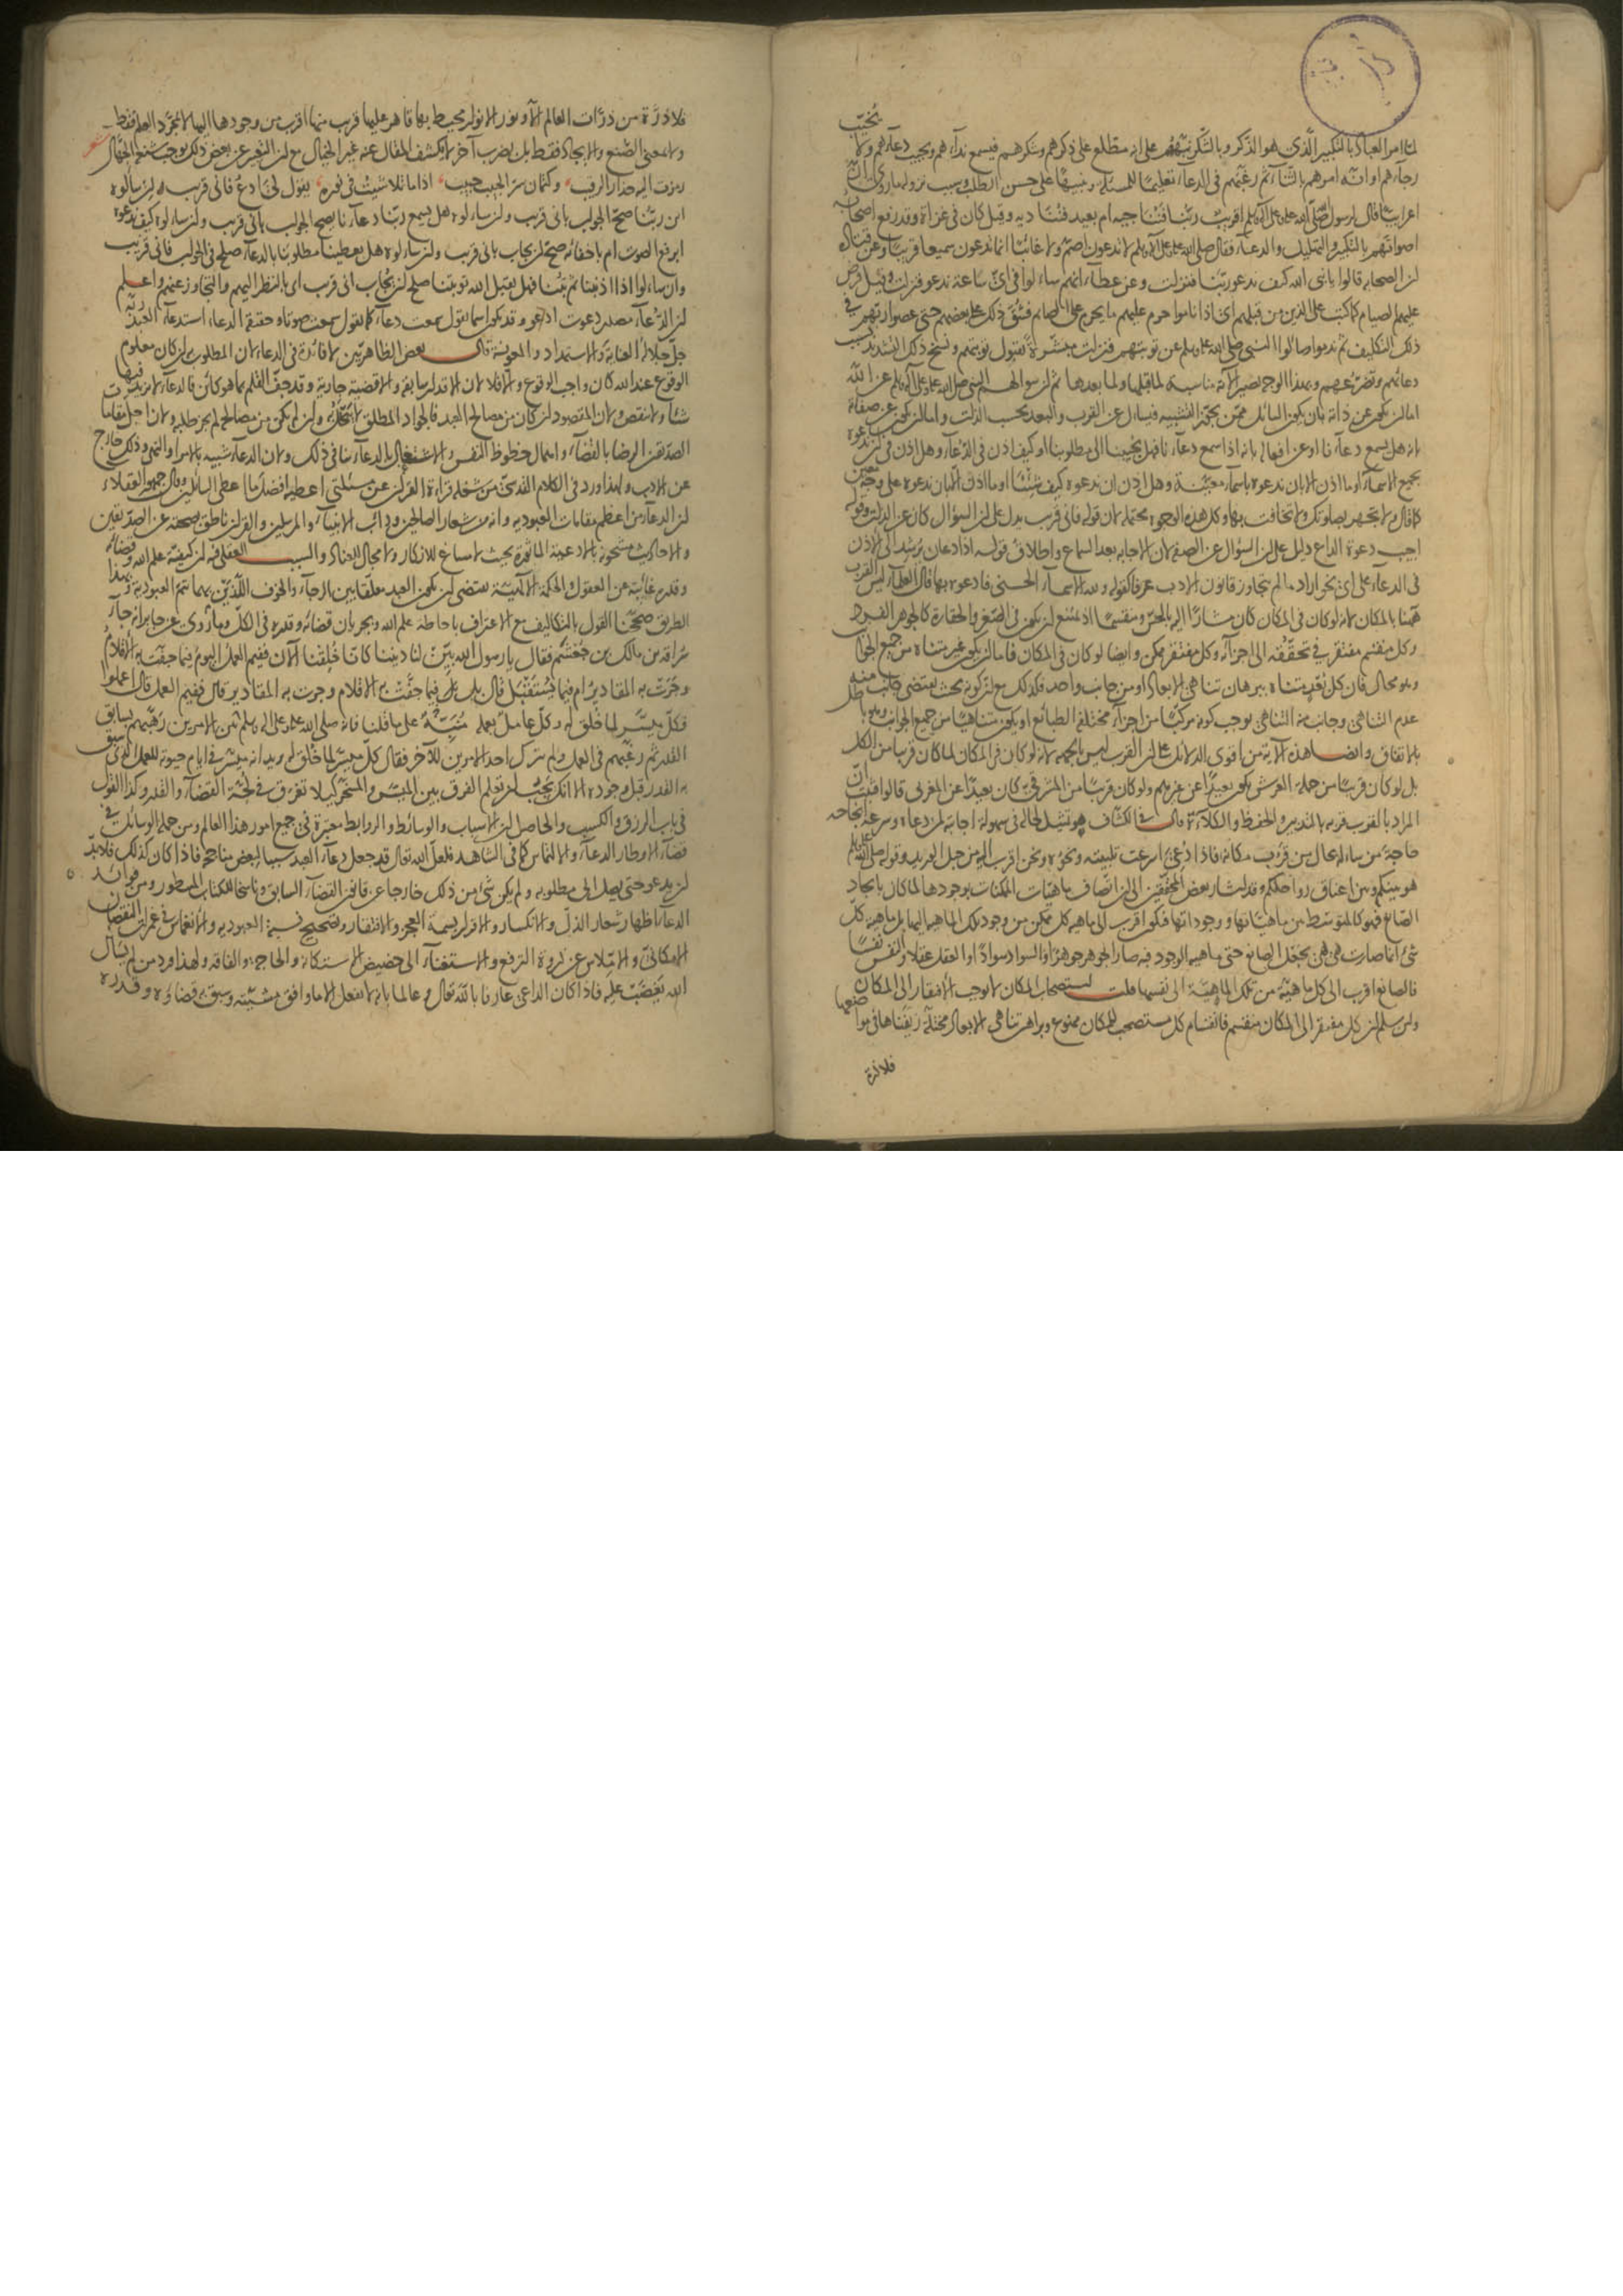 لما امر العباد بالتكبير الذي هو الذكر وبالشكر نبههم على انه مطلع على ذكرهم وشكرهم فيسمع نداءهم ويجيب دعاءهم ولا يخيب
رجاءهم او انه امرهم بالثناء ثم رغبهم في الدعاء تعليما للمسئلة وتنبيها على حسن الطلب وسبب نزولها ما روي ان
اعرابيا قال يا رسول الله صلى الله عليه وعلى آله وسلم اقريب ربنا فنناجيه ام بعيد فنناديه وقيل كان في غزاة وقد رفع اصحابه
اصواتهم بالتكبير والتهليل والدعاء فقال صلى الله عليه وعلى آله وسلم لا تدعون اصم ولا غائبا انما تدعون سميعا قريبا وعن قتادة
ان الصحابة قالوا يا نبي الله كيف ندعو ربنا فنزلت وعن عطاء انهم سألوا في اي ساعة ندعو فنزلت وقيل فرض
عليهم الصيام كما كتب على الذين من قبلهم اي اذا ناموا حرم عليهم ما يحرم على الصائم فشق ذلك على بعضهم حتى عصوا ربهم في
ذلك التكليف ثم ندموا وسألوا النبي صلى الله عليه وسلم عن توبتهم فنزلت مبشرة بقبول توبتهم ونسخ ذلك التشديد بسبب
دعائهم وتضرعهم وبهذا الوجه تصير الآية مناسبة لما قبلها ولما بعدها ثم ان سؤالهم النبي صلى الله عليه وعلى آله وسلم عن الله
اما ان يكون عن ذاته بان يكون السائل ممن يجوز التشبيه فيسأل عن القرب والبعد بحسب الذات واما ان يكون عن صفاته
بانه هل يسمع دعاءنا او عن افعاله بانه اذا سمع دعاءنا فهل يجيبنا الى مطلوبنا او كيف اذن في الدعاء وهل اذن في ان ندعوه
بجميع الاسماء او ما اذن الا بان ندعوه باسماء معينة وهل اذن ان ندعوه كيف شئنا او ما اذن الا بان ندعوه على وجه معين
كما قال ولا تجهر بصلوتك ولا تخافت بها وكل هذه الوجوه محتملة لان قوله فاني قريب يدل على ان السؤال كان عن الذات وقوله
اجيب دعوة الداع دليل على ان السؤال عن الصفة لان الاجابة بعد السماع واطلاق قوله اذا دعان يرشد الى الاذن
في الدعاء على اي نحو اراد ما لم يتجاوز قانون الادب عرفا كقوله ولله الاسماء الحسنى فادعوه بها قال العلماء ليس القرب
ههنا بالمكان لانه لو كان في المكان كان مشارا اليه بالحس ومنقسما اذ يمتنع ان يكون في الصغر والحقارة كالجوهر الفرد
وكل منقسم مفتقر في تحققه الى اجزائه وكل مفتقر ممكن وايضا لو كان في المكان فاما ان يكون غير متناه من جميع الجوانب
وهو محال فان كل بعد متناه ببرهان تناهي الابعاد او من جانب واحد فكذلك مع ان كونه بحيث يقتضي جانب منه
عدم التناهي وجانب منه التناهي يوجب كونه مركبا من اجزاء مختلفة الطبائع او يكون متناهيا من جميع الجوانب وهو باطل
بالاتفاق وايضا هذه الآية من اقوى الدلائل على ان القرب ليس بالجهة لانه لو كان في المكان لما كان قريبا من الكل
بل لو كان قريبا من حملة العرش يكون بعيدا عن غيرهم ولو كان قريبا من المشرقي كان بعيدا عن المغربي قالوا فثبت ان
المراد بالقرب قربه بالتدبير والحفظ والكلاءة قال في الكشاف هو تمثيل لحاله في سهولة اجابته لمن دعاه وسرعة انجاحه
حاجة من سأله بحال من قرب مكانه فاذا دعي اسرعت تلبيته ونحوه ونحن اقرب اليه من حبل الوريد وقوله صلى الله عليه وسلم
هو بينكم وبين اعناق رواحلكم وقد اشار بعض المحققين الى ان اتصاف ماهيات الممكنات بوجودها لما كان بايجاد
الصانع فهو كالمتوسط بين ماهياتها ووجوداتها فيكون اقرب الى ماهية كل ممكن من وجود تلك الماهية اليها بل ماهية كل
شيء انما صارت هي هي بجعل الصانع حتى ماهية الوجود فبه صار الجوهر جوهرا والسواد سوادا والعقل عقلا والنفس نفسا
فالصانع اقرب الى كل ماهية من تلك الماهية الى نفسها قلت استصحاب المكان لا يوجب الافتقار الى المكان
ولئن سلم ان كل مفتقر الى المكان منقسم فانقسام كل مستصحب للمكان ممنوع وبراهين تناهي الابعاد مختلة زيفناها في مواضعها
فلا ذرة
فلا ذرة من ذرات العالم الا ونور الانوار محيط بها قاهر عليها قريب منها اقرب من وجودها اليها لا بمجرد العلم فقط
ولا بمعنى الصنع والايجاد فقط بل بضرب آخر لا يكشف المقال عنه غير الخيال مع ان التعبير عن بعض ذلك يوجب شنعة الجهال شعر
رمزت اليه حذار الرقيب وكتمان سر الحبيب حبيب اذا ما تلاشيت في نوره يقول لي ادع فاني قريب ان سألوه
اين ربنا صح الجواب باني قريب وان سألوه هل يسمع ربنا دعاءنا يصح الجواب باني قريب وان سألوه كيف ندعوه
ابرفع الصوت ام باخفائه صح ان يجاب باني قريب وان سألوه هل يعطينا مطلوبنا بالدعاء صلح في الجواب فاني قريب
وان سألوا اذا اذنبنا ثم تبنا فهل يقبل الله توبتنا صلح ان يجاب اني قريب اي بالنظر اليهم والتجاوز عنهم واعلم
ان الدعاء مصدر دعوت ادعو وقد يكون اسما تقول سمعت دعاء كما تقول سمعت صوتا وحقيقة الدعاء استدعاء العبد ربه
جل جلاله العناية والاستمداد والمعونة قال بعض الظاهريين لا فائدة في الدعاء لان المطلوب ان كان معلوم
الوقوع عند الله كان واجب الوقوع والا فلا لان الاقدار سابقة والاقضية جارية وقد جف القلم بما هو كائن فالدعاء لا يزيد فيها
شيئا ولا ينقص ولان المقصود ان كان من مصالح العبد فالجواد المطلق لا يبخل به وان لم يكن من مصالحه لم يجز طلبه ولان اجل مقامات
الصديقين الرضا بالقضاء واهمال حظوظ النفس والاشتغال بالدعاء ينافي ذلك ولان الدعاء شبيه بالامر والنهي وذلك خارج
عن الادب ولهذا ورد في الكلام القدسي من شغله قراءة القرآن عن مسئلتي اعطيه افضل ما اعطي السائلين وقال جمهور العقلاء
ان الدعاء من اعظم مقامات العبودية وانه من شعار الصالحين وداب الانبياء والمرسلين والقرآن ناطق بصحته عن الصديقين
والاحاديث مشحونة بالادعية الماثورة بحيث لا مساغ للانكار ولا مجال للعناد والسبب العقلي فيه ان كيفية علم الله وقضائه
وقدره غائبة عن العقول والحكمة الالهية تقتضي ان يكون العبد معلقا بين الرجاء والخوف اللذين بهما تتم العبودية وبهذا
الطريق صححنا القول بالتكاليف مع الاعتراف باحاطة علم الله وجريان قضائه وقدره في الكل وما روي عن جابر انه جاء
سراقة بن مالك بن جعشم فقال يا رسول الله بين لنا ديننا كانا خلقنا الآن ففيم العمل اليوم فيما جفت به الاقلام
وجرت به المقادير ام فيما يستقبل قال بل فيما جفت به الاقلام وجرت به المقادير قال ففيم العمل قال اعملوا
فكل ميسر لما خلق له وكل عامل بعمله منبه على ما قلنا فانه صلى الله عليه وعلى آله وسلم بين الامرين رهبهم بسابق
القدر ثم رغبهم في العمل ولم يترك احد الامرين للآخر فقال كل ميسر لما خلق له يريد انه ميسر في ايام حيوته للعمل الذي سبق
به القدر قبل وجوده الا انك يجب ان تعلم الفرق بين الميسر والمسخر كيلا تغرق في لجة القضاء والقدر وكذا القول
في باب الرزق والكسب والحاصل ان الاسباب والوسائط والروابط معتبرة في جميع امور هذا العالم ومن جملة الوسائل في
قضاء الاوطار الدعاء والالتماس كما في الشاهد فلعل الله تعالى قد جعل دعاء العبد سببا لبعض مناجحه فاذا كان كذلك فلا بد
ان يدعو حتى يصل الى مطلوبه ولم يكن شيء من ذلك خارجا عن قانون القضاء السابق وناسخا للكتاب المسطور ومن فوائد
الدعاء اظهار شعار الذل والانكسار والاقرار بسمة العجز والافتقار وتصحيح نسبة العبودية والانغماس في غمرات النقصان
الامكاني والافلاس عن ذروة الترفع والاستغناء الى حضيض الاستكانة والحاجة والفاقة ولهذا ورد من لم يسأل
الله يغضب عليه فاذا كان الداعي عارفا بالله تعالى وعالما بانه لا يفعل الا ما وافق مشيته وسبق به قضاؤه وقدره